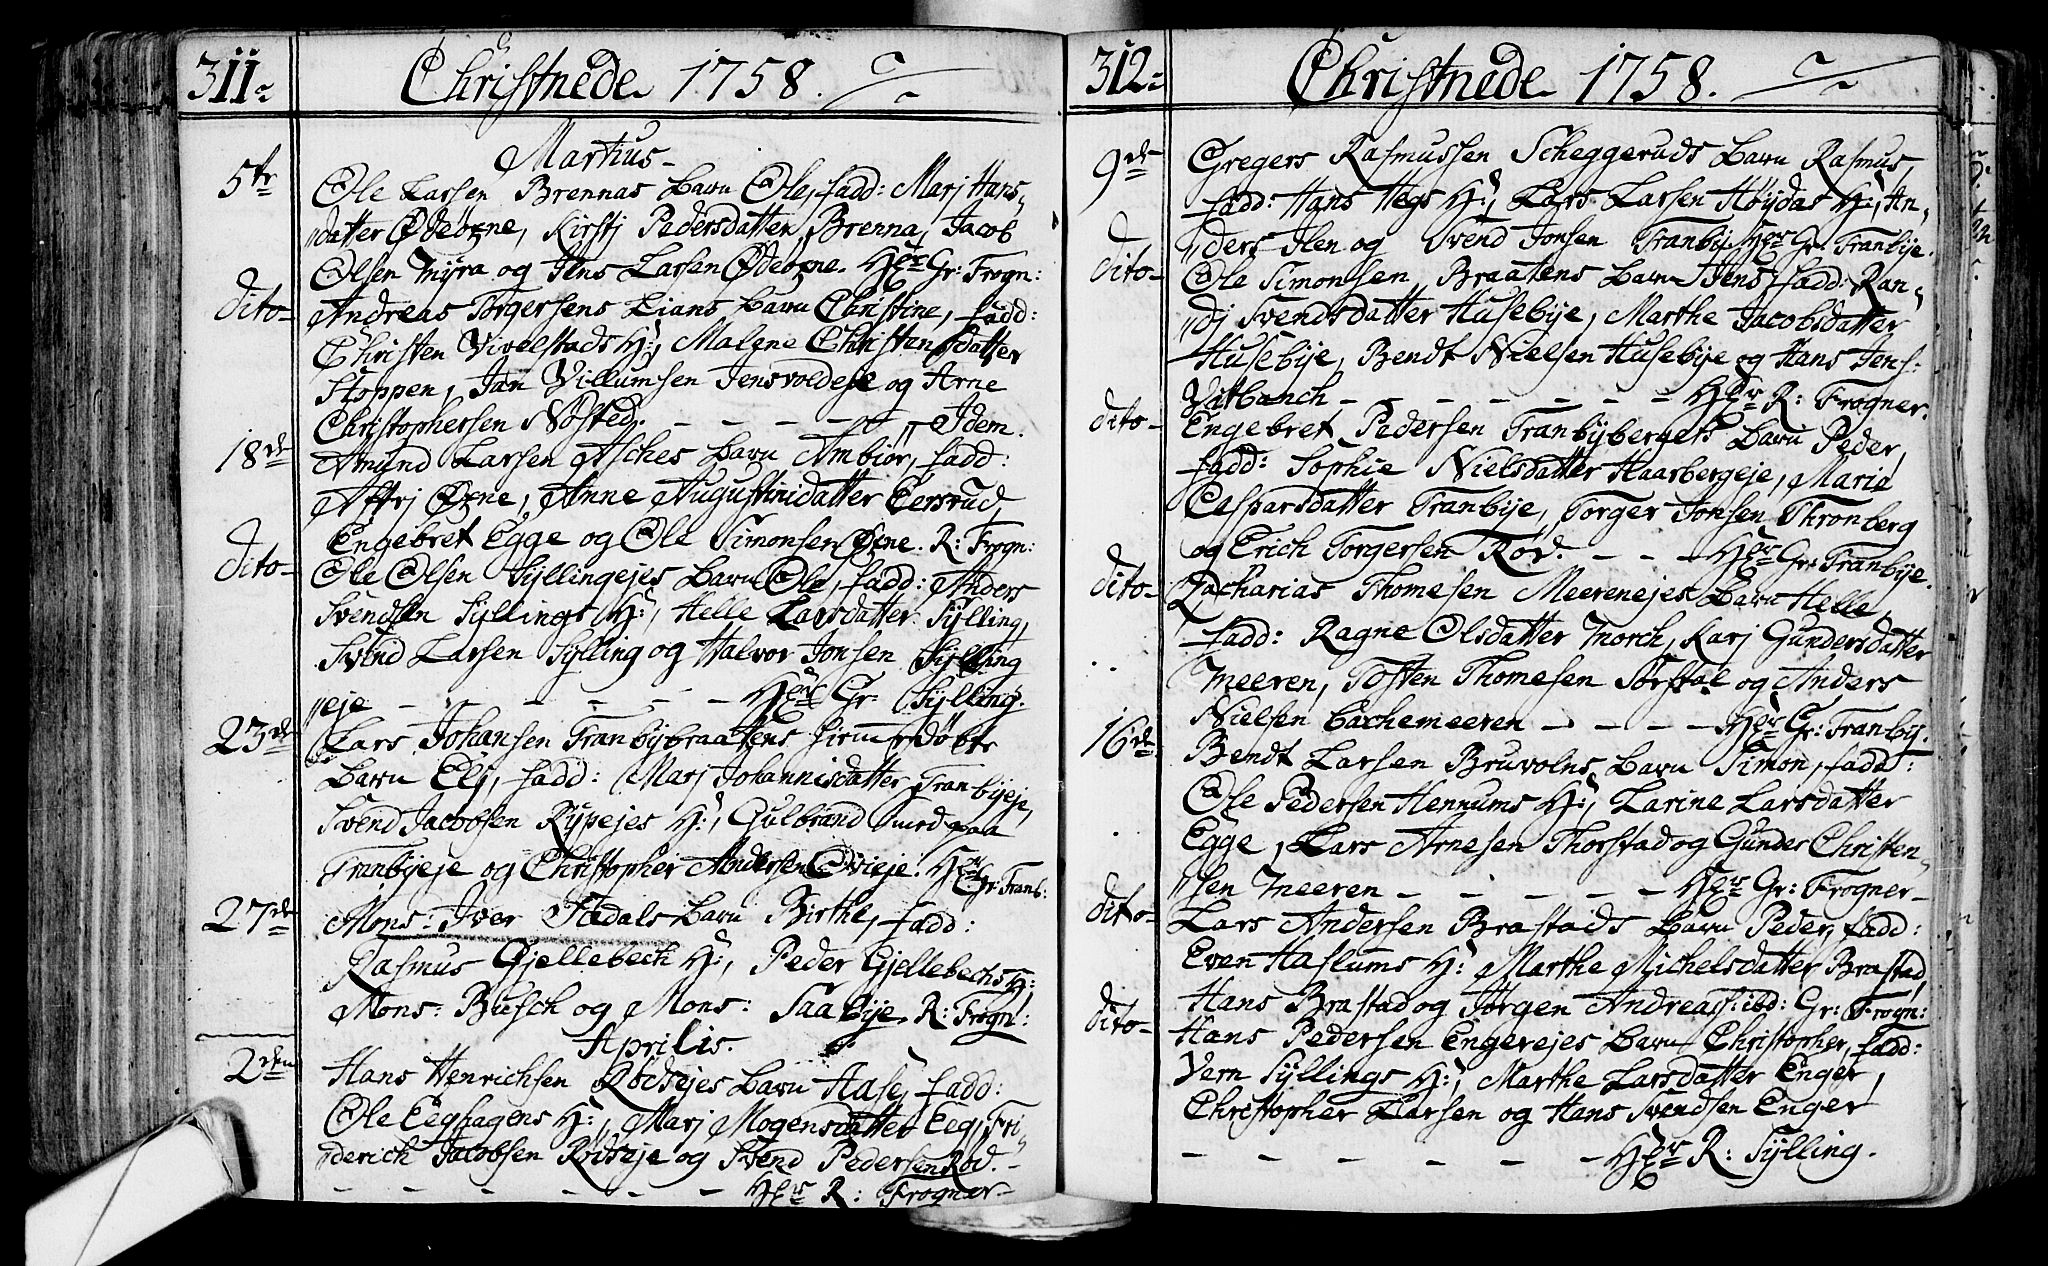 311.
Christnede 1758.
Martius
5te Ole Larsen Brennas barn Ole, fadd: Marj Hans-
datter Ødeørne, Kirstj Pedersdatter Brenna, Jacob
Olsen Myra og Jens Larsen Ødeørne. Hr Gr: Frogn:
dito- Andreas Torgersens Lians barn Christine, fadd:
Christen Vivelstads H:, Malene Christensdatter
Stoppen, Jan Villumsen Jensvoldeje og Arne
Christophersen Nøsted. - - - - - Idem.
18de Amund Larsen Asches barn Ambiør, fadd:
Affrj Øxne, Anne Augustinidatter Eersrud,
Engebret Egge og Ole Simonsen Øxne. R: Frogn:
dito- Ole Olsen Syllingejes barn Ole, fadd: Anders
Svendsen Syllings H:, Helle Larsdatter Sylling,
Svend Larsen Sylling og Halvor Jonsen Sylling
eje - - - - - - Hr Gr: Sylling.
23de Lars Johansen Tranbybraatens hiemmedøbte
barn Elj, fadd: Marj Johannisdatter Tranbyeje,
Svend Jacobsen Rypejes H:, Gulbrand Smed paa
Tranbyeje og Christopher Andersen Ovieje. Hr Gr: Tranb:
27de Mons: Iver Tædals barn Birthe, fadd:
Rasmus Gjellebech H:, Peder Gjellebechs H:
Mons: Busch og Mons: Saabye. R: Frogn:
Aprilis.
2den Hans Henrichsen Rødsejes barn Hase, fadd:
Ole Eeghagens H:, Marj Mogensdatter Eeg, Fri-
derich Jacobsen Rødseje og Svend Pedersen Rød.-
- - - - - - Hr R: Frogner-
312-
Christnede 1758.
9de Gregers Rasmussen Scheggeruds barn Rasmus,
fadd: Hans Hegs H:, Lars Larsen Høydas H:, An-
ders Ilen og Svend Jonsen Tranby. Hr Gr: Tranbye.
dito- Ole Simonsen Braatens barn Jens, fadd: Ran-
dj Svendsdatter Husebye, Marthe Jacobsdatter
Husebye, Bendt Nielsen Husebye og Hans Jens:
Vatbanch - - - - - - - Hr R: Frogner.
dito- Engebret Pedersen Tranbybergets barn Peder,
fadd: Sophie Nielsdatter Haarbergeje, Maria
Casparsdatter Tranbye, Torger Jonsen Thronberg
og Erich Torgersen Rød. - - - Hr Gr: Tranbye.
dito- Zacharias Thomesen Meerenejes barn Helle,
fadd: Ragne Olsdatter Morch, Karj Gundersdatter
Meeren, Tosten Thomesen Sørsdal og Anders
Nielsen bachemeeren - - - - Hr Gr: Tranby.
16de Bendt Larsen Bruvolns barn Simon, fadd:
Ole Pedersen Hennums H:, Larine Larsdatter
Egge, Lars Arnesen Thorstad og Gunder Christen-
sen Meeren - - - - - Hr Gr: Frogner-
dito- Lars Andersen Brastads barn Peder, fadd:
Even Haslums H: Marthe Michelsdatter Brastad,
Hans Brastad og Jørgen Andreass: ibd: Gr: Frogn:
dito- Hans Pedersen Engerejes barn Christopher, fadd:
Vern Syllings H:, Marthe Larsdatter Enger,
Christopher Larsen og Hans Svendsen Enger
- - - - - - Hr R: Sylling.